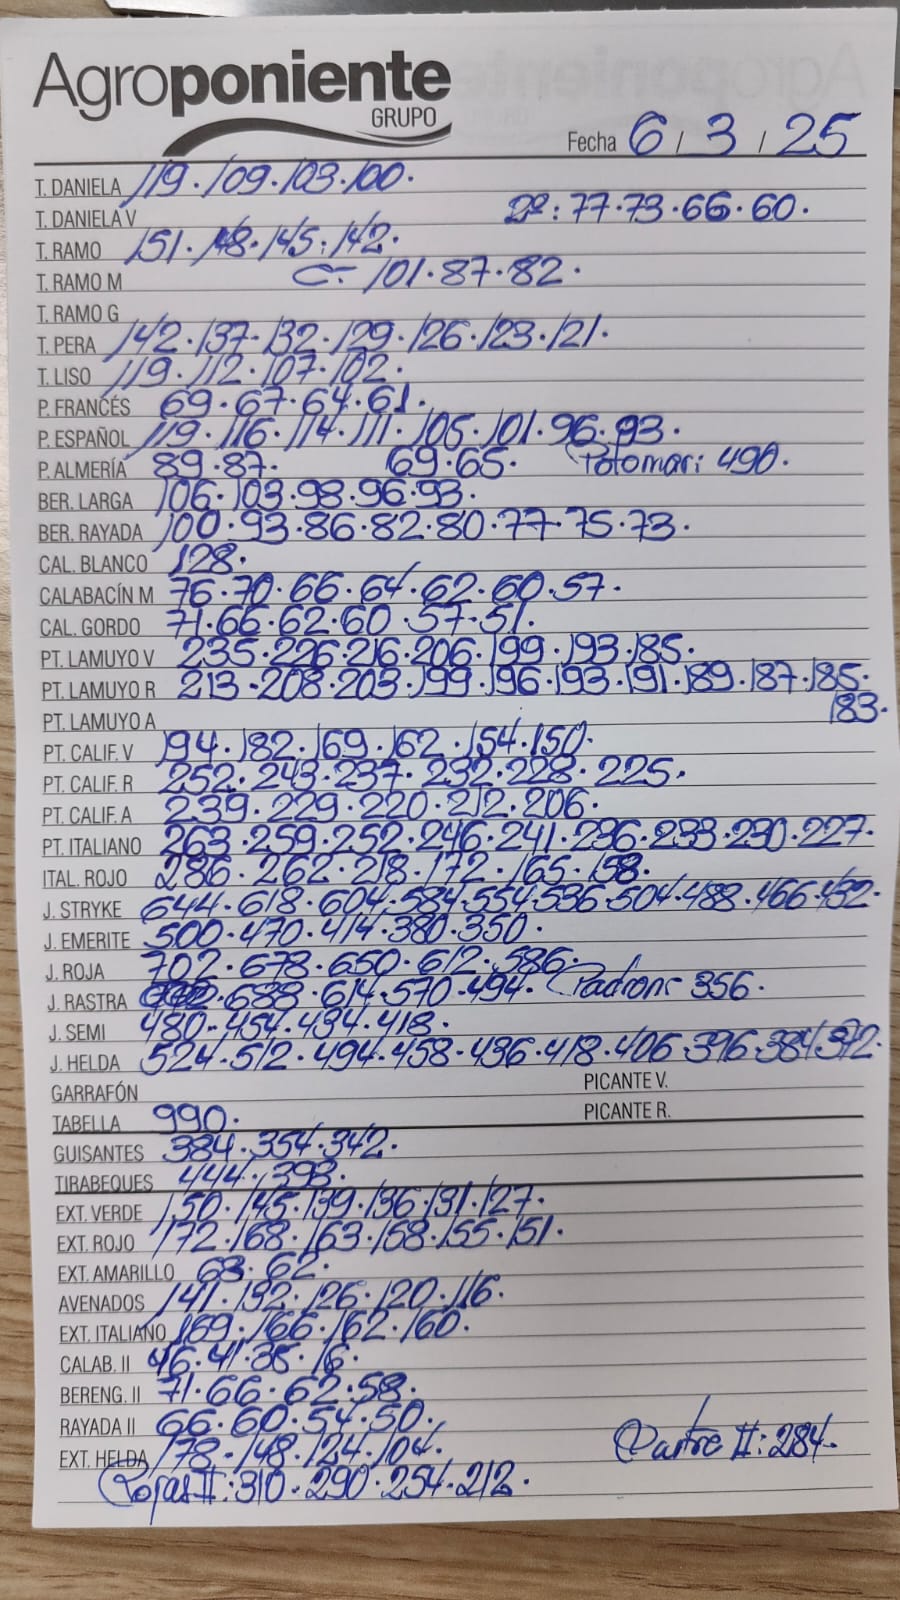 Agroponiente
GRUPO
Fecha 6 / 3 / 25
T. DANIELA 119 · 109 · 103 · 100 ·
T. DANIELA V 2º : 77 · 73 · 66 · 60 ·
T. RAMO 151 · 148 · 145 · 142 ·
T. RAMO M C- 101 · 87 · 82 ·
T. RAMO G
T. PERA 142 · 137 · 132 · 129 · 126 · 123 · 121 ·
T. LISO 119 · 112 · 107 · 102 ·
P. FRANCÉS 69 · 67 · 64 · 61 ·
P. ESPAÑOL 119 · 116 · 114 · 111 · 105 · 101 · 96 · 93 ·
P. ALMERÍA 89 · 87 · 69 · 65 · Potomar: 490 ·
BER. LARGA 106 · 103 · 98 · 96 · 93 ·
BER. RAYADA 100 · 93 · 86 · 82 · 80 · 77 · 75 · 73 ·
CAL. BLANCO 128 ·
CALABACÍN M 76 · 70 · 66 · 64 · 62 · 60 · 57 ·
CAL. GORDO 71 · 66 · 62 · 60 · 57 · 51 ·
PT. LAMUYO V 235 · 226 · 216 · 206 · 199 · 193 · 185 ·
PT. LAMUYO R 213 · 208 · 203 · 199 · 196 · 193 · 191 · 189 · 187 · 185 ·
PT. LAMUYO A 183 ·
PT. CALIF. V 194 · 182 · 169 · 162 · 154 · 150 ·
PT. CALIF. R 252 · 243 · 237 · 232 · 228 · 225 ·
PT. CALIF. A 239 · 229 · 220 · 212 · 206 ·
PT. ITALIANO 263 · 259 · 252 · 246 · 241 · 236 · 233 · 230 · 227 ·
ITAL. ROJO 286 · 262 · 218 · 172 · 165 · 158 ·
J. STRYKE 644 · 618 · 604 · 584 · 554 · 536 · 504 · 488 · 466 · 432 ·
J. EMERITE 500 · 470 · 414 · 380 · 350 ·
J. ROJA 702 · 678 · 650 · 612 · 586 ·
J. RASTRA · 688 · 614 · 570 · 494 · Padron: 356 ·
J. SEMI 480 · 454 · 434 · 418 ·
J. HELDA 524 · 512 · 494 · 458 · 436 · 418 · 406 · 396 · 384 · 372 ·
GARRAFÓN PICANTE V.
TABELLA 990 · PICANTE R.
GUISANTES 384 · 354 · 342 ·
TIRABEQUES 444 · 393 ·
EXT. VERDE 150 · 145 · 139 · 136 · 131 · 127 ·
EXT. ROJO 172 · 168 · 163 · 158 · 155 · 151 ·
EXT. AMARILLO 68 · 62 ·
AVENADOS 141 · 132 · 126 · 120 · 116 ·
EXT. ITALIANO 169 · 166 · 162 · 160 ·
CALAB. II 46 · 41 · 38 · 16 ·
BERENG. II 71 · 66 · 62 · 58 ·
RAYADA II 66 · 60 · 54 · 50 ·
EXT. HELDA 178 · 148 · 124 · 104 · II: 284 ·
Rojas II: 310 · 290 · 254 · 212 ·